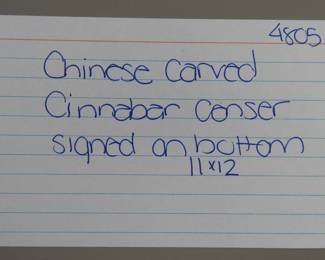 4805
Chinese Carved
Cinnabar Conser
signed on bottom
11x12